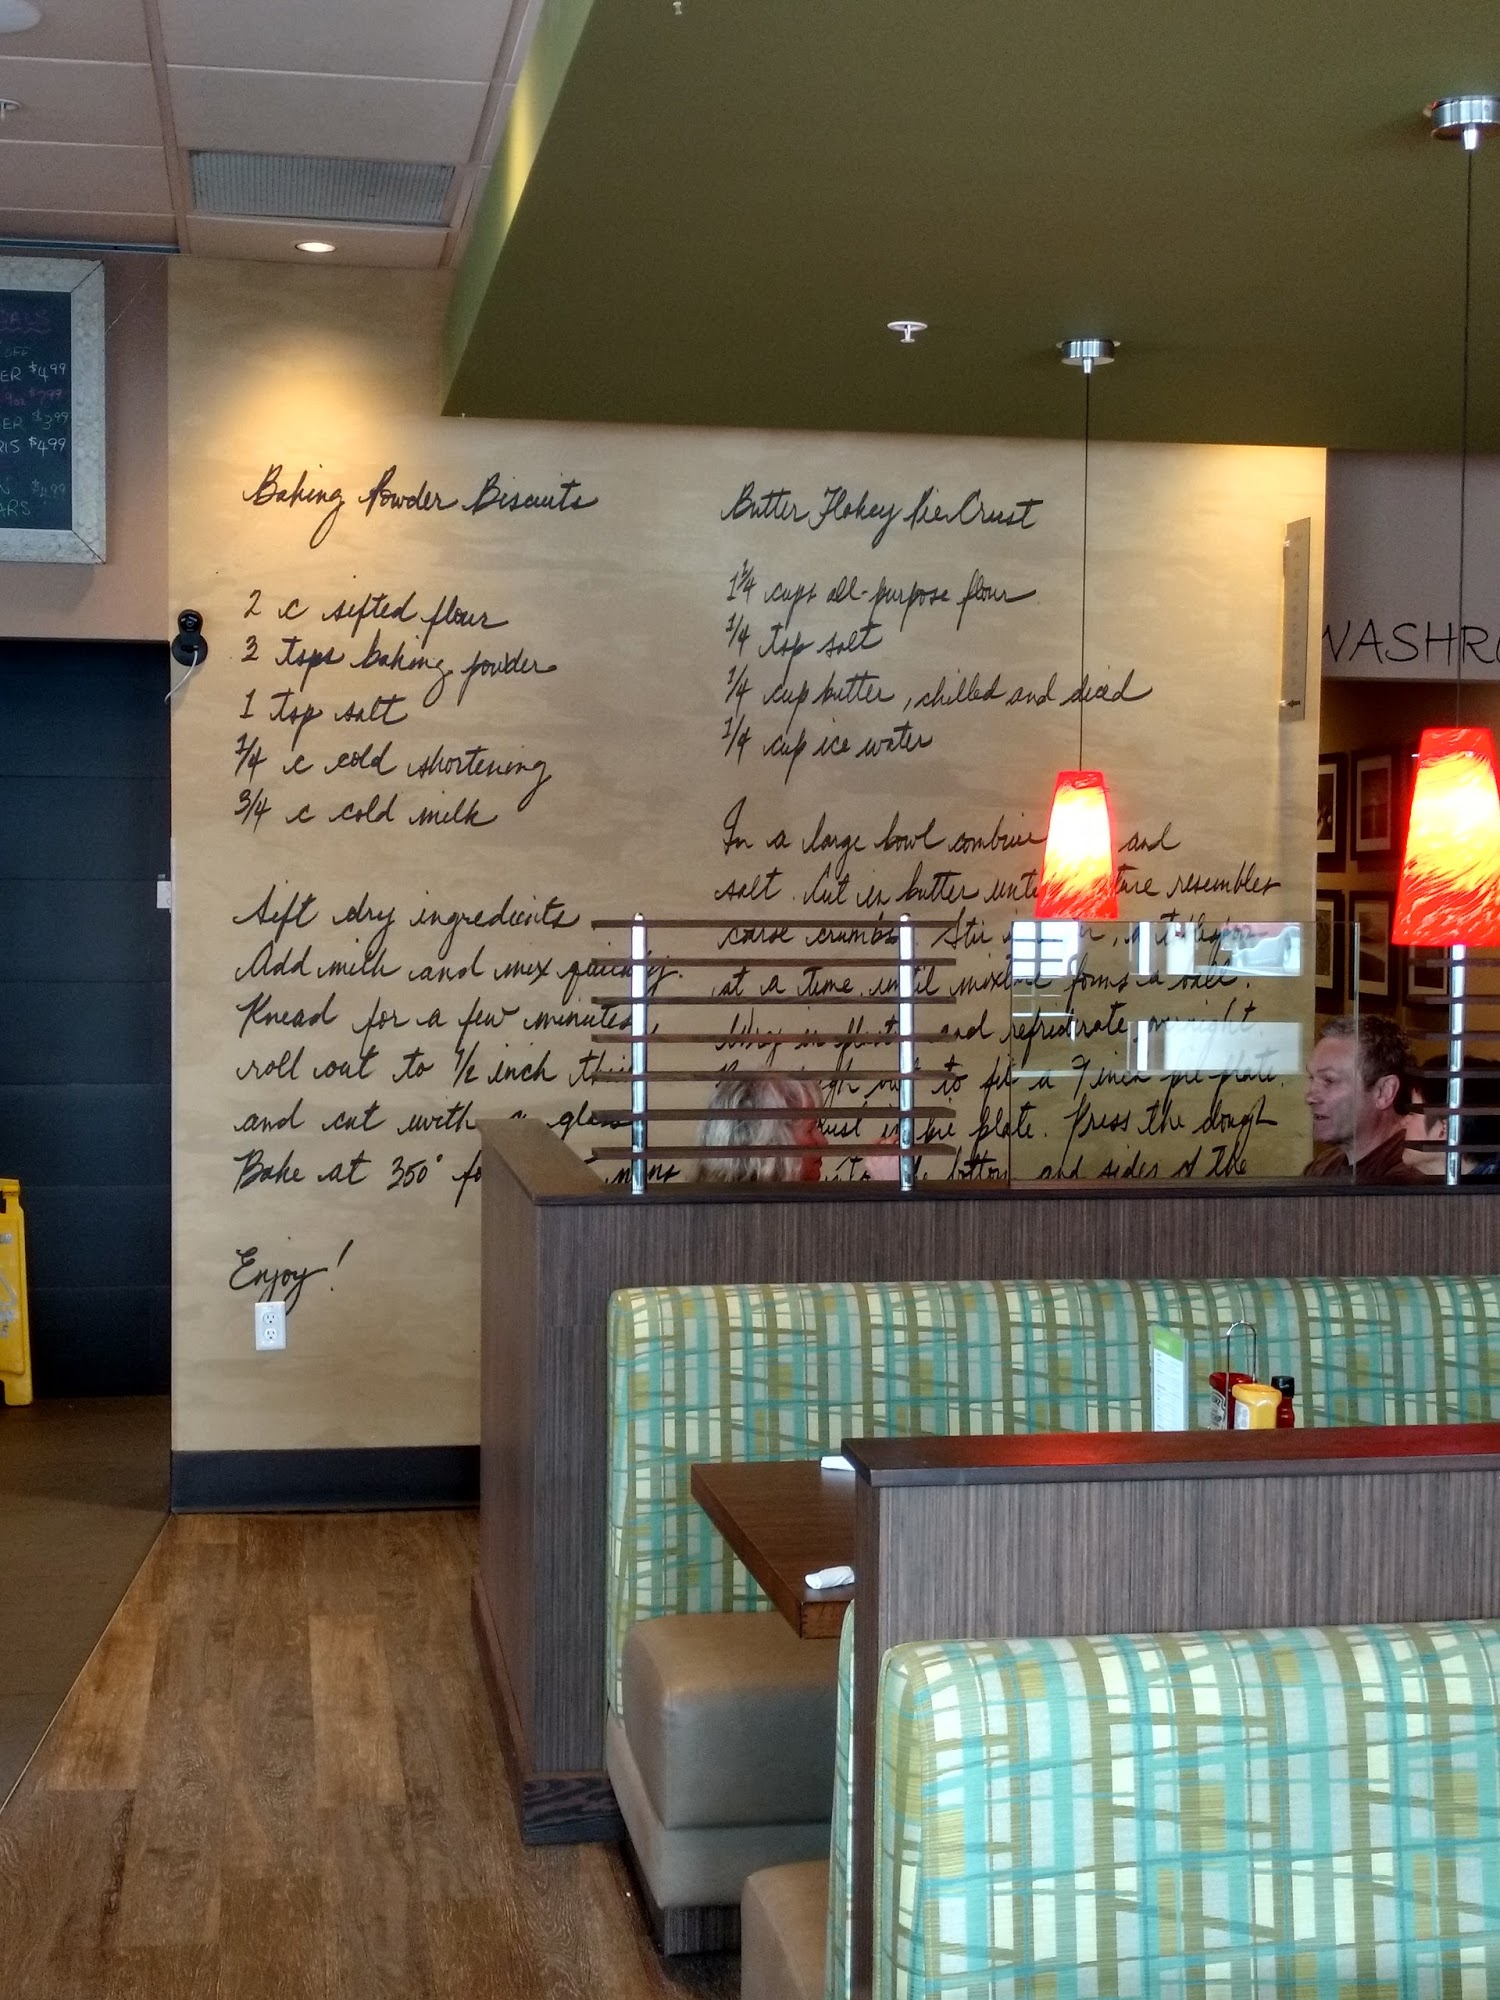 ER $4.99
$7.99
ER $3.99
RIS $4.99
N $4.99
ARS
Baking Powder Biscuits
2 c sifted flour
3 tsps baking powder
1 tsp salt
1/4 c cold shortening
3/4 c cold milk
Sift dry ingredients
Add milk and mix quickly.
Knead for a few minutes,
roll out to 1/2 inch thick
and cut with a glass
Bake at 350° mins
Enjoy!
Butter Flakey Pie Crust
1 1/4 cups all-purpose flour
1/4 tsp salt
1/4 cup butter, chilled and diced
1/4 cup ice water
In a large bowl combine and
salt. Cut in butter until mixture resembles
coarse crumbs. Stir in
at a time until mixture forms a ball.
and refrigerate overnight.
out to fit a 9 inch pie plate.
crust in pie plate. Press the dough
into the bottom and sides of the
WASHRO